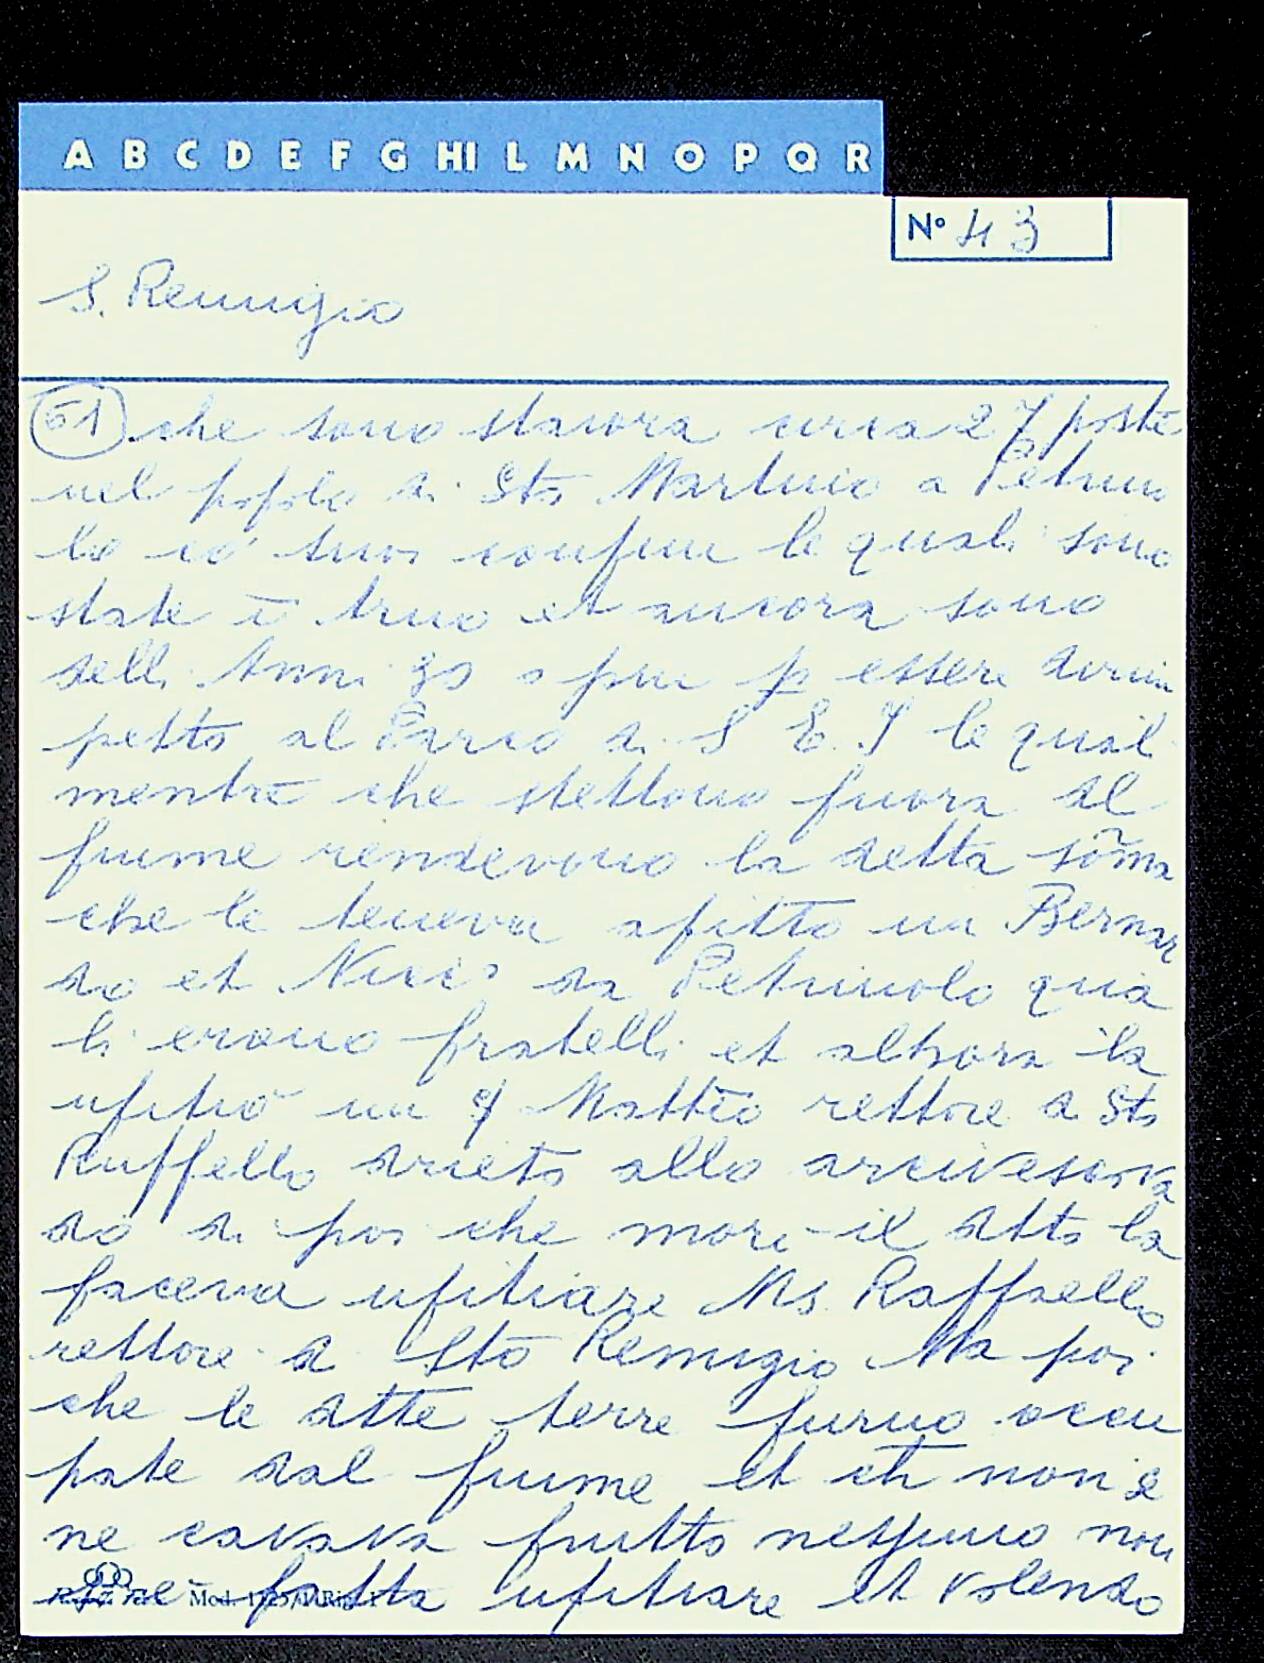 A B C D E F G HI L M N O P Q R
N° 43
S. Remigio
51 che sono staiora circa 27 poste
nel popolo di Sto Martino a Petriuo
lo co suoi confini le quali sono
state ī Arno et ancora sono
delli Anni 30 o piu p essere dirim
petto al Parco di S E. I le quali
mentre che stettono fuora del
fiume rendevono la detta sõma
che le teneva afitto un Bernar
do et da Petriuolo qua
li erono fratelli et alhora la
ufitiò un Matteo rettore a Sto
Ruffello drieto allo arcivescova
do di poi che morì il dtto la
faceva ufitiare Ms. Raffaello
rettore di Sto Remigio Ma poi
che le dtte terre furno occu
pate dal fiume et ch non se
ne cavava frutto nessuno non
fatta ufitiare et volendo